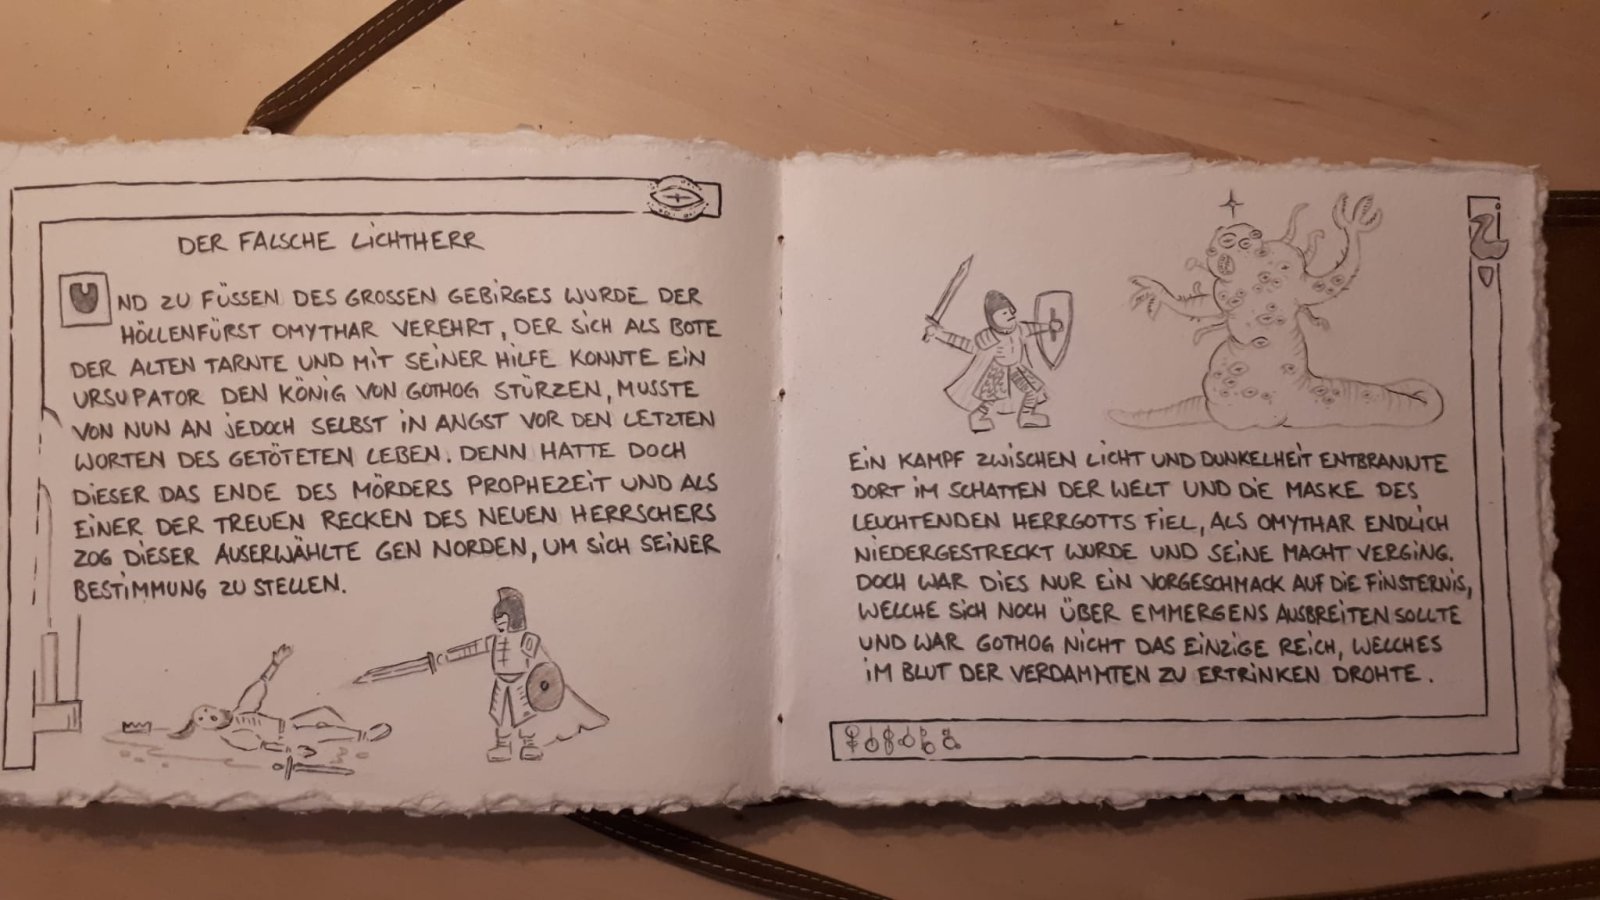 DER FALSCHE LICHTHERR
UND ZU FÜSSEN DES GROSSEN GEBIRGES WURDE DER
HÖLLENFÜRST OMYTHAR VEREHRT, DER SICH ALS BOTE
DER ALTEN TARNTE UND MIT SEINER HILFE KONNTE EIN
URSUPATOR DEN KÖNIG VON GOTHOG STÜRZEN, MUSSTE
VON NUN AN JEDOCH SELBST IN ANGST VOR DEN LETZTEN
WORTEN DES GETÖTETEN LEBEN. DENN HATTE DOCH
DIESER DAS ENDE DES MÖRDERS PROPHEZEIT UND ALS
EINER DER TREUEN RECKEN DES NEUEN HERRSCHERS
ZOG DIESER AUSERWÄHLTE GEN NORDEN, UM SICH SEINER
BESTIMMUNG ZU STELLEN.
EIN KAMPF ZWISCHEN LICHT UND DUNKELHEIT ENTBRANNTE
DORT IM SCHATTEN DER WELT UND DIE MASKE DES
LEUCHTENDEN HERRGOTTS FIEL, ALS OMYTHAR ENDLICH
NIEDERGESTRECKT WURDE UND SEINE MACHT VERGING.
DOCH WAR DIES NUR EIN VORGESCHMACK AUF DIE FINSTERNIS,
WELCHE SICH NOCH ÜBER EMMERGENS AUSBREITEN SOLLTE
UND WAR GOTHOG NICHT DAS EINZIGE REICH, WELCHES
IM BLUT DER VERDAMMTEN ZU ERTRINKEN DROHTE.